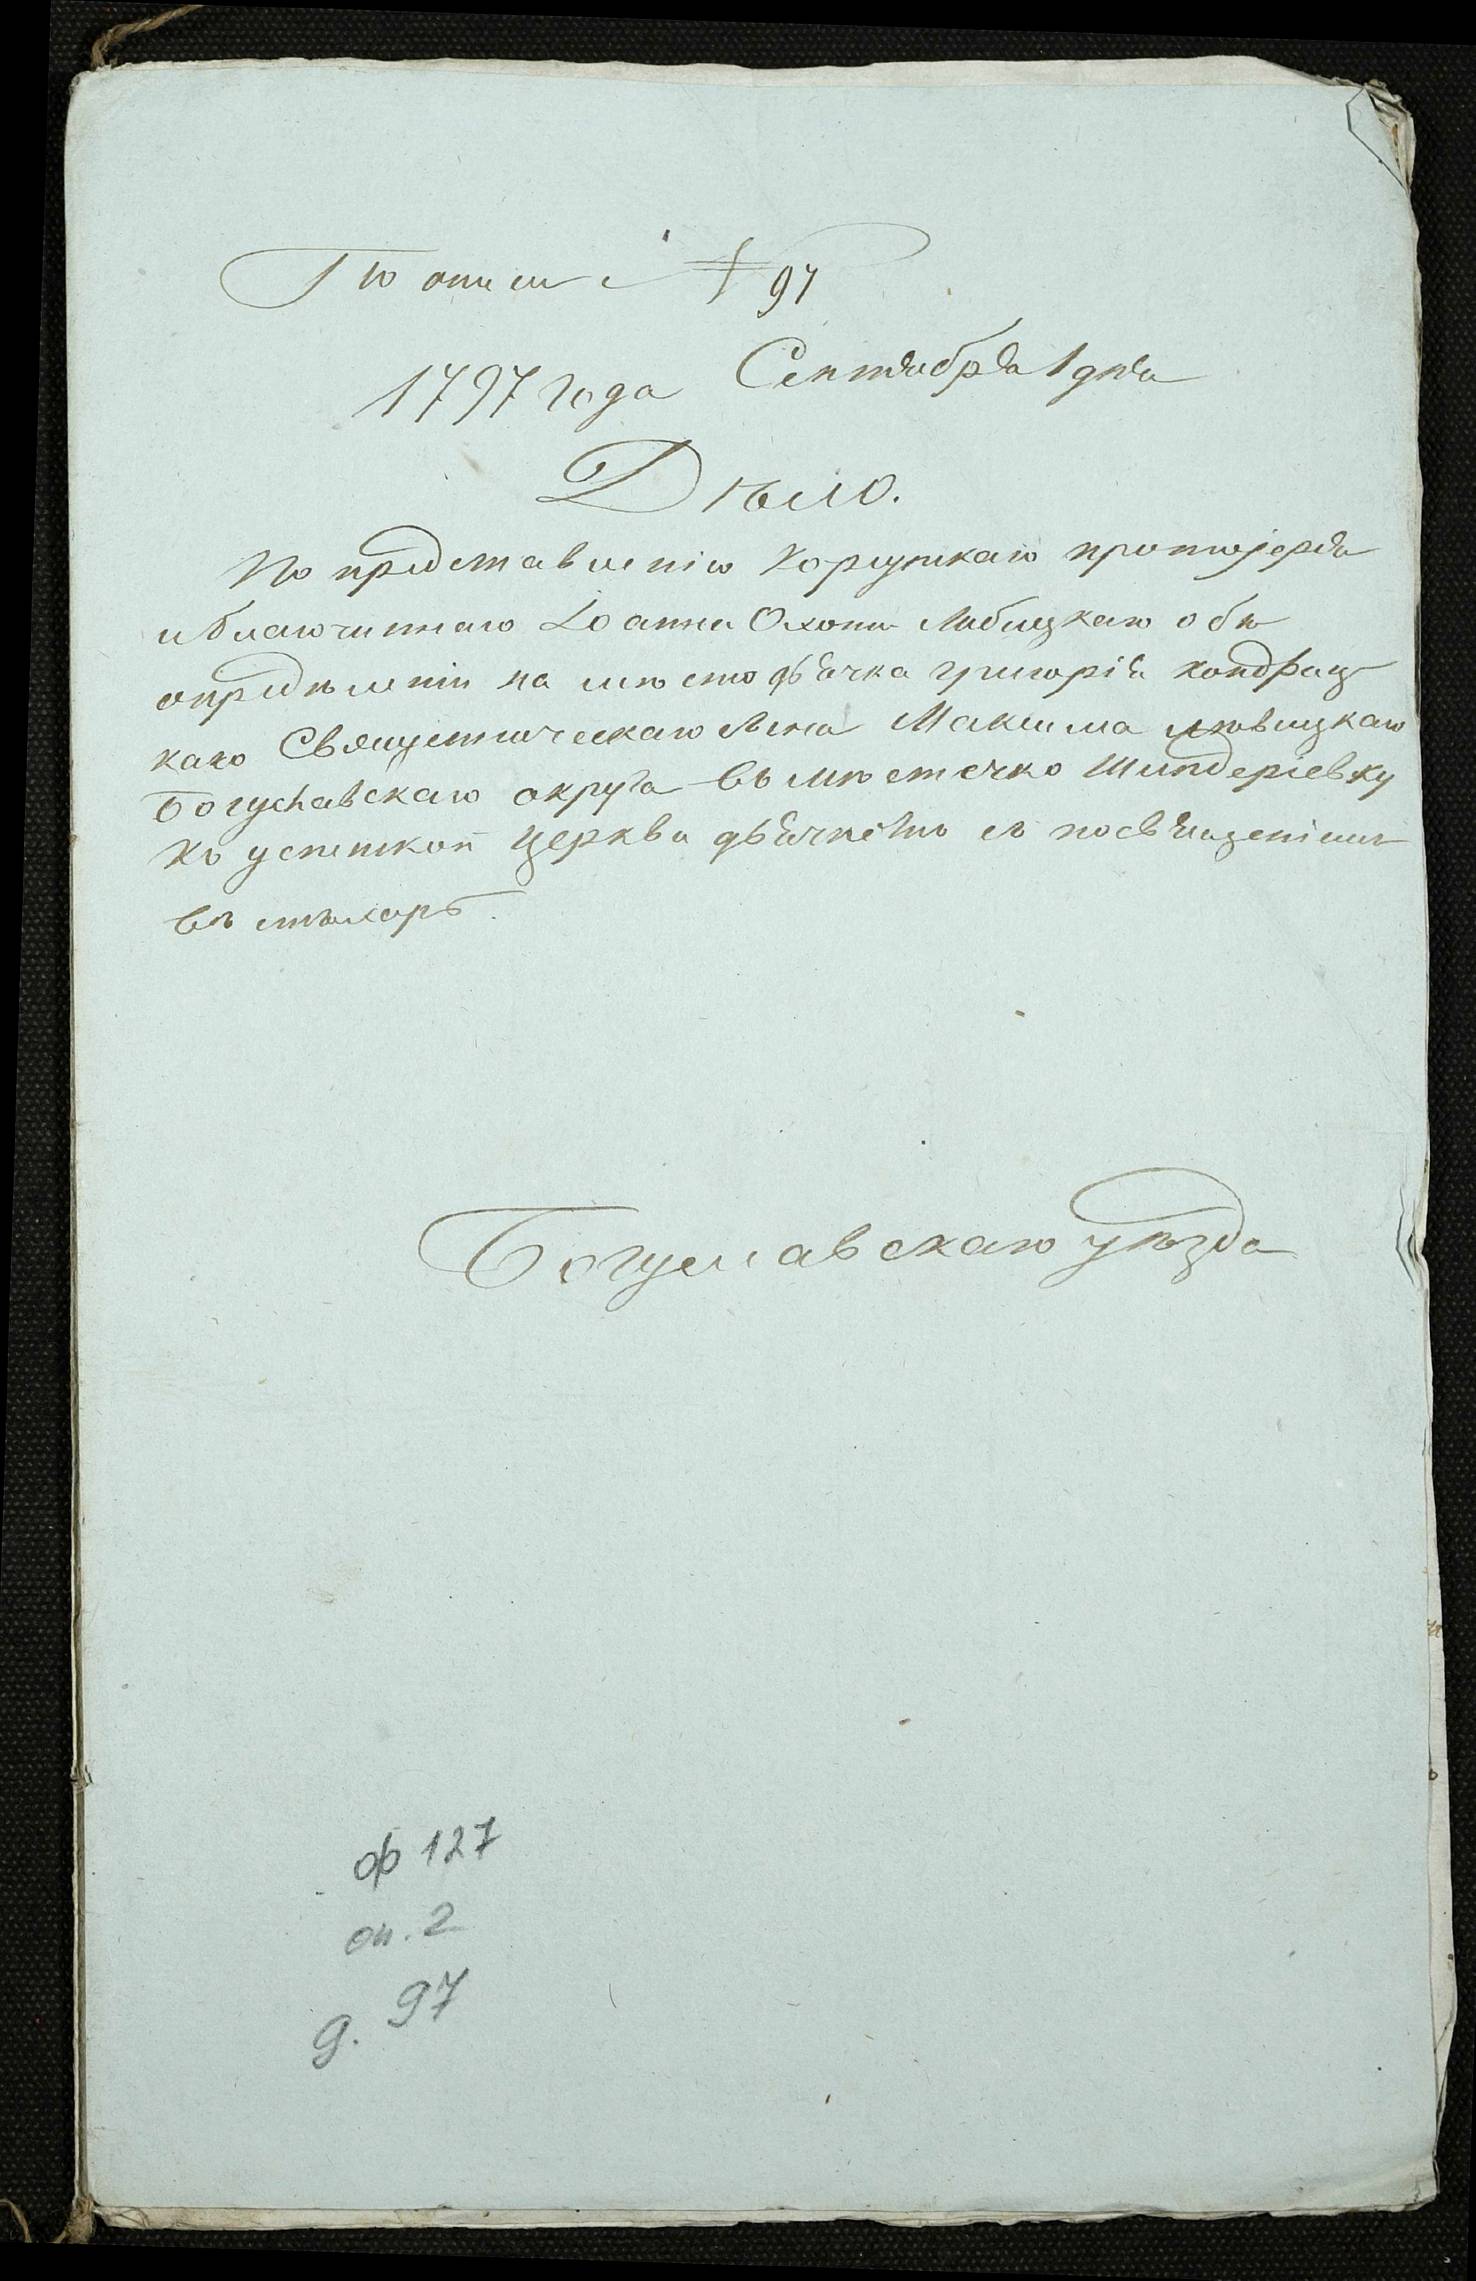 По описи № 97
1797 года Сентября 1 дня
Дѣло.
По представленію Корсунскаго протоіерея
и благочиннаго Іоанна Левицкаго объ
опредѣленіи на мѣсто дьячка григорія кондрац
каго Священническаго сына Максима левицкаго
Богуславскаго округа въ мѣстечко Шендеріевку
къ успенской церкви дьячкомъ съ посвященіемъ
въ стихарь.
Богуславскаго уѣзда
ф 127
оп. 2
д. 97